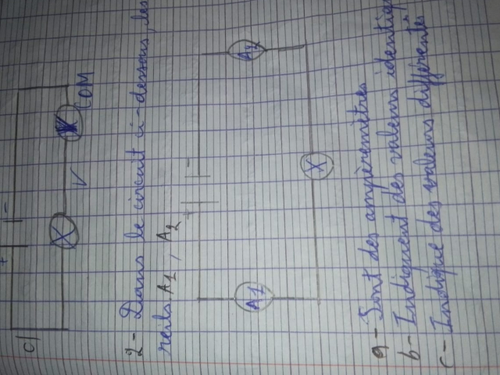 c)
+ -
V COM
2- Dans le circuit ci-dessous, les
reils A1, A2
+ -
A1 X A2
a- Sont des ampèremètres
b- Indiquent des valeurs identiq
c- Indique des valeurs différentes